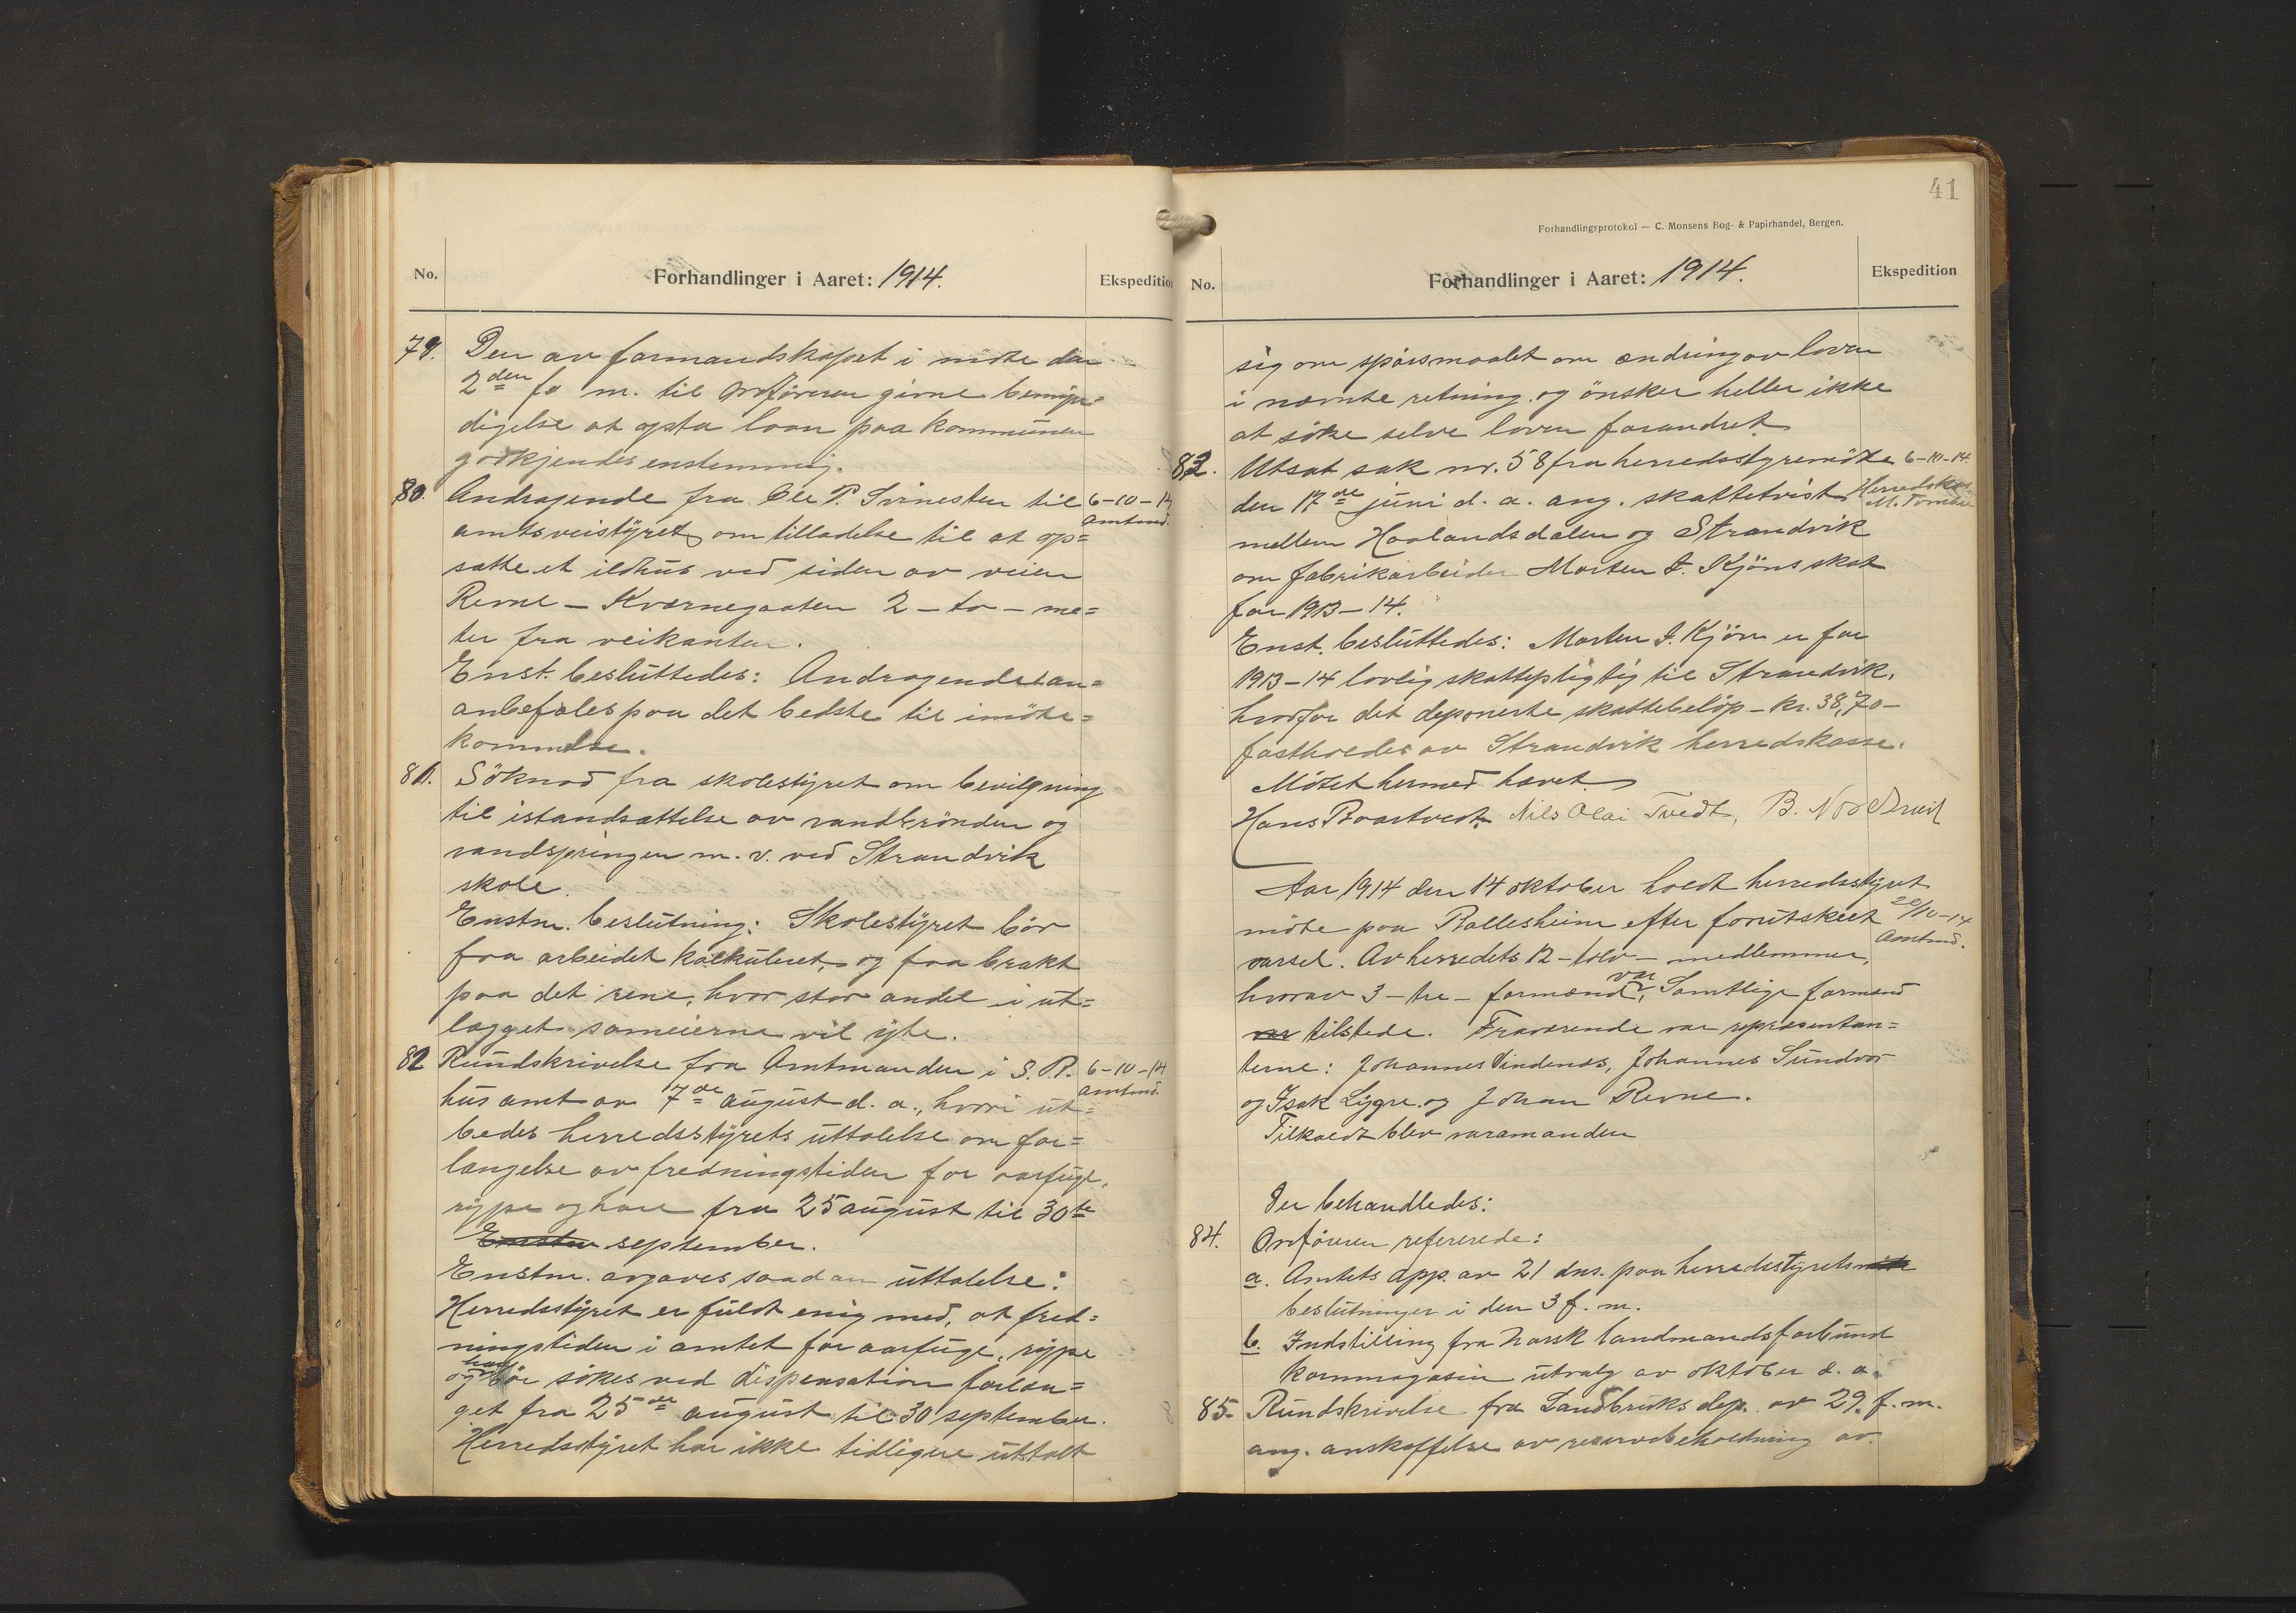 No.
Forhandlinger i Aaret: 1914.
Ekspedition
79. Den av formandskapet i möte den
2den f. m. til ordföreren givne bemyn=
digelse at opta laan paa kommunen
godkjendes enstemmig.
80. Andragende fra Ole P. Svinesten til 6-10-14
amtsveistyret om tilladelse til at op= Amtmd.
sætte et ildhus ved siden av veien
Revne - Kvernegaaten 2 - to - me=
ter fra veikanten.
Enst. besluttedes: Andragendet an=
anbefales paa det bedste til imöte=
kommelse.
81. Söknad fra skolestyret om bevilgning
til istandsættelse av vandbrönden og
vandspringen m. v. ved Strandvik
skole.
Enstm. beslutning: Skolestyret bör
faa arbeidet kalkuleret, og faa brakt
paa det rene, hvor stor andel i ut=
lægget sameierne vil yte.
82 Rundskrivelse fra Amtmanden i S. B. 6-10-14
hus amt av 7de august d. a., hvori ut= Amtmd.
bedes herredsstyrets uttalelse om for=
længelse av fredningstiden for aarfugl,
rype og hare fra 25 august til 30te
Enstm september.
Enstm. avgaves saadan uttalelse:
Herredsstyret er fuldt enig med, at fred=
ningstiden i amtet for aarfugl, rype
og hare bör sökes ved dispensation forlæn=
get fra 25de august til 30 september.
Herredsstyret har ikke tidligere uttalt
41
Forhandlingsprotokol — C. Monsens Bog- & Papirhandel, Bergen.
No.
Forhandlinger i Aaret: 1914.
Ekspedition
sig om spörsmaalet om ændring av loven
i nævnte retning og önsker heller ikke
at söke selve loven forandret.
83. Utsat sak nr. 58 fra herredsstyremöte 6-10-14.
den 17de juni d. a. ang. skattetvist Herredskas.
mellem Haalandsdalen og Strandvik M. Tombre
om fabrikarbeider Morten I. Kjöns skat
for 1913-14.
Enst. besluttedes: Morten I. Kjön er for
1913-14 lovlig skattepligtig til Strandvik,
hvorfor det deponerte skattebelöp - kr. 38,70 -
fastholdes av Strandvik herredskasse.
Mötet hermed hævet.
Hans Baartvedt, Nils Olai Tvedt, B. Nordvik
Aar 1914 den 14 oktober holdt herredsstyret
möte paa Ballesheim efter forutskikt 20/10-14
varsel. Av herredets 12 - tolv - medlemmer, Amtmd.
hvorav 3 - tre - formænd, var samtlige formænd
var tilstede. Fraværende var repræsentan=
terne: Johannes Vindenes, Johannes Sundvor
og Isak Lygre og Johan Revne.
Tilkaldt blev varamanden
Der behandledes:
84. Ordföreren refererede:
a. Amtets app. av 21 dns. paa herredsstyrets möte
beslutninger i den 3 f. m.
b. Indstilling fra Norsk landmandsforbund
kornmagasin utvalg av oktober d. a.
85. Rundskrivelse fra Landbruks dep. av 29. f. m.
ang. anskaffelse av reservebeholdning av